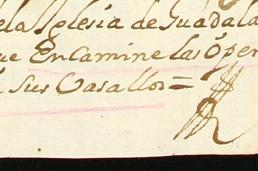 ela Iglesia de Guadala
ue Encamine las oper
sus Vasallos =